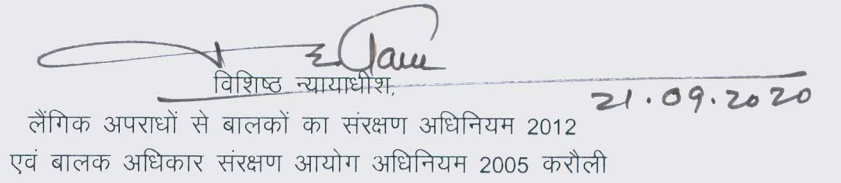 विशिष्ठ न्यायाधीश,
21.09.2020
लैंगिक अपराधों से बालकों का संरक्षण अधिनियम 2012
एवं बालक अधिकार संरक्षण आयोग अधिनियम 2005 करौली